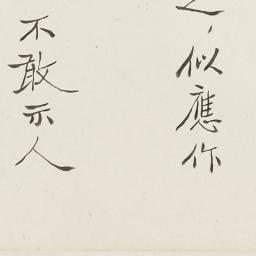 似應作
不敢示人